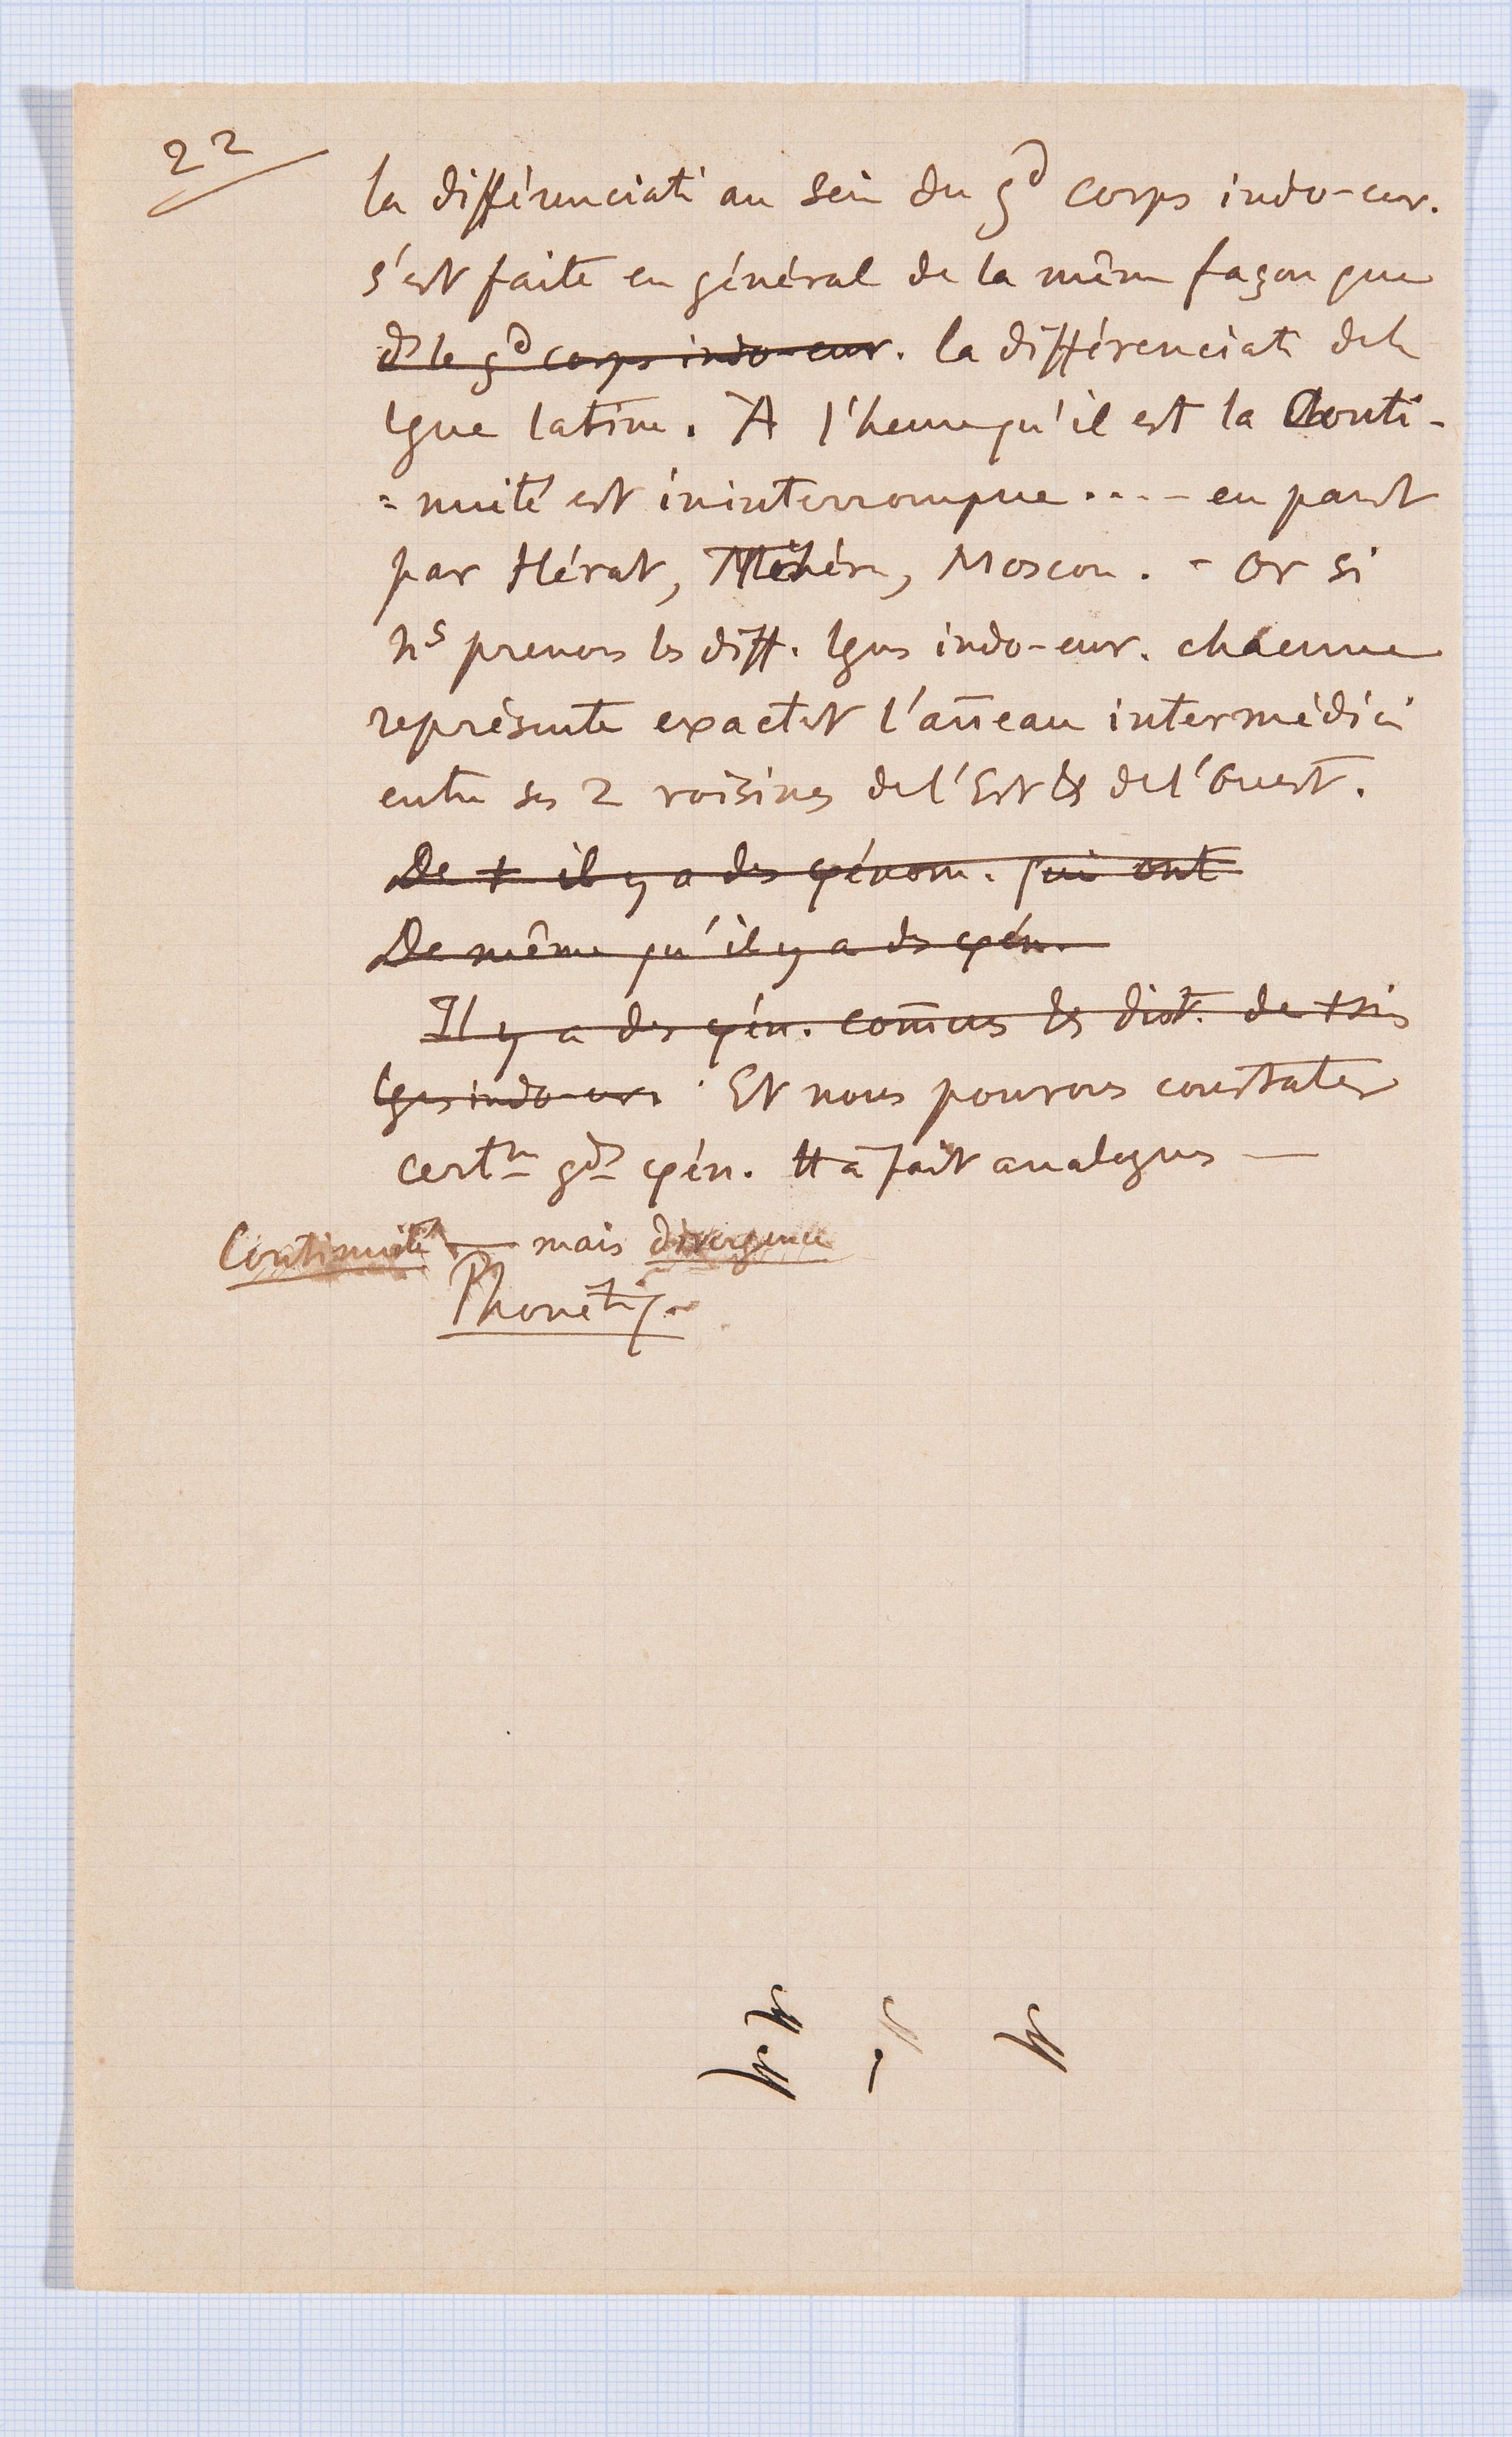 22
la différenciati au sein du gd corps indo-eur.
s'est faite en général de la même façon que
ds le gd corps indo-eur. la différenciati de la
lgue latine. À l'heure qu'il est la Conti-
=nuité est ininterrompue .... en passt
par Hérat, Téhéran, Moscou. - Or si
ns prenons les diff. lgues indo-eur. chacune
représente exactet l'an̄eau intermédiai
entre ses 2 voisines de l'Est & de l'Ouest.
De + il y a des φénom. qui ont
De même qu'il y a des φén.
Il y a des φén. com̄uns
lgues indo-eur. Et nous pouvons constater
certns gds φén. tt à fait analogues —
Continuité — mais divergence
Phonétiq.